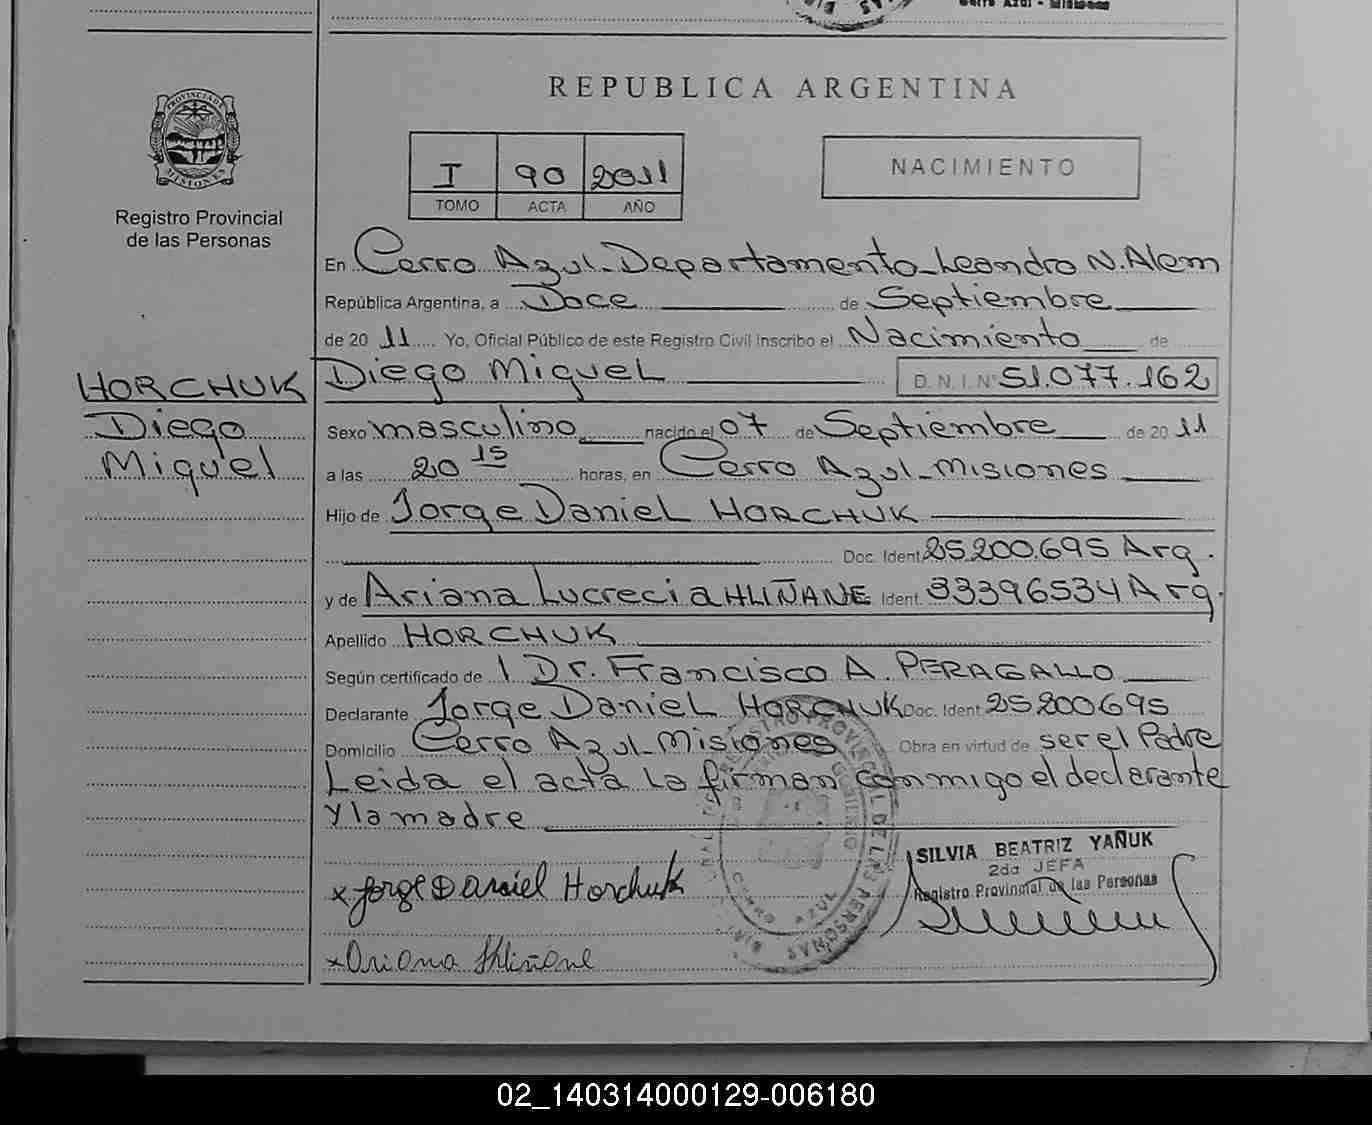 Cerro Azul - Misiones
REPUBLICA ARGENTINA
PROVINCIA DE
MISIONES
Registro Provincial
de las Personas
I 90 2011
TOMO ACTA AÑO
NACIMIENTO
En Cerro Azul - Departamento - Leandro N. Alem
República Argentina, a Doce de Septiembre
de 20 11 Yo, Oficial Público de este Registro Civil Inscribo el Nacimiento de
HORCHUK
Diego
Miguel
Diego Miguel D. N. I. Nº 51.077.162
Sexo masculino nacido el 07 de Septiembre de 20 11
a las 20 15 horas, en Cerro Azul - Misiones
Hijo de Jorge Daniel HORCHUK
Doc. Ident. 25.200.695 Arg.
y de Ariana Lucrecia HLIÑANE Ident. 33396534 Arg.
Apellido HORCHUK
Según certificado de 1 Dr. Francisco A. PERAGALLO
Declarante Jorge Daniel HORCHUK Doc. Ident. 25200695
Domicilio Cerro Azul - Misiones Obra en virtud de ser el Padre
Leida el acta la firman conmigo el declarante
y la madre
SILVIA BEATRIZ YAÑUK
2da JEFA
Registro Provincial de las Personas
x Jorge Daniel Horchuk
x Ariana Hliñane
02_140314000129-006180